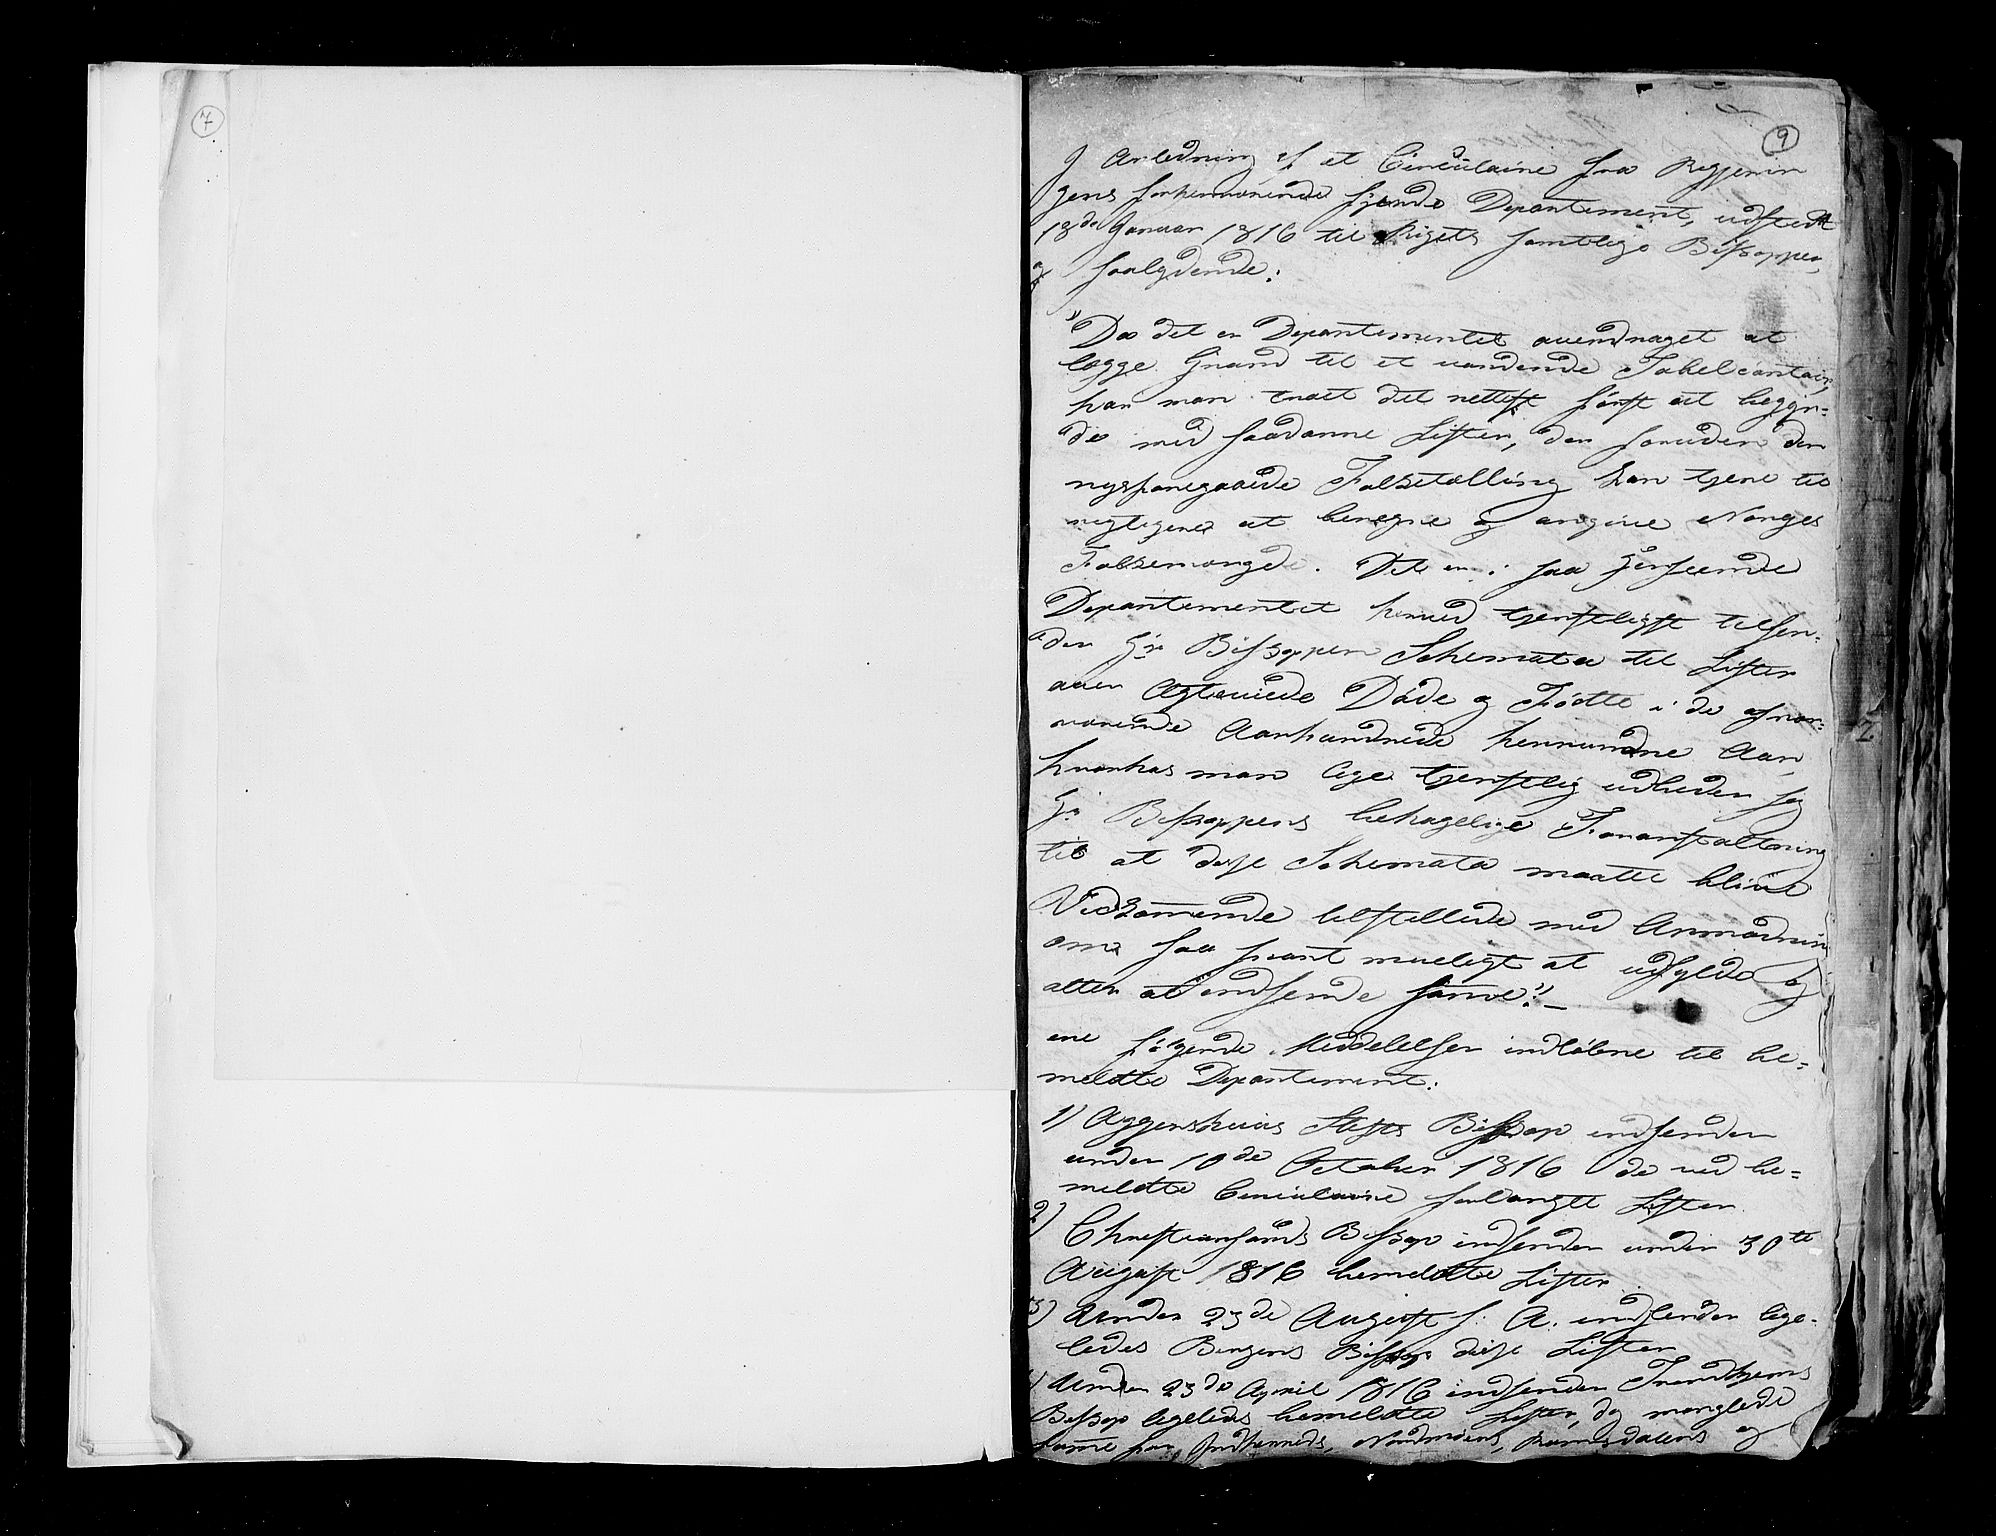 7
9
I Anledning af et Circulaire fra Regjerin
gens forhenværende fjerde Departement, udstedt
13de Januar 1816 til Rigets samtlige Bisopper,
saalydende:
"Da det er Departementet overdraget at
lægge Grund til et vordende Tabelcontoir,
har man troet det rettest først at begyn-
de med saadanne Lister, der foruden den
nysforegaaede Folketælling kan tjene til
nøyligere at beregne og angive Norges
Folkemængde. Det er i saa Henseende
Departementet herved tjenstligst tilsen-
der Hr Biskoppen Schemata til Lister
over Ægteviede Døde og Fødte i de af nær-
værende Aarhundrede henrundne Aar,
hvorhos man lige tjenstlig udbeder sig
Hr Biskoppens behagelige Foranstaltning
til at disse Schemata maatte blive
Vedkommende tilstillede med Anmodning
om saa snart mueligt at udfylde og
atter at indsende samme." —
ere følgende Meddelelser indløbne til be-
meldte Departement:
1) Aggershuus Stifts Biskop indsender
under 10de October 1816 de ved be-
meldte Circulaire forlangte Lister
2) Christiansands Biskop indsender under 30te
August 1816 bemeldte Lister
3) Under 23de August s. A. indsender lige-
ledes Bergens Biskop disse Lister
4) Under 23de April 1816 indsender Trondhjems
Biskop ligeledes bemeldte Lister, dog manglede
samme for Indherreds, Nordmøers, Romsdalens og